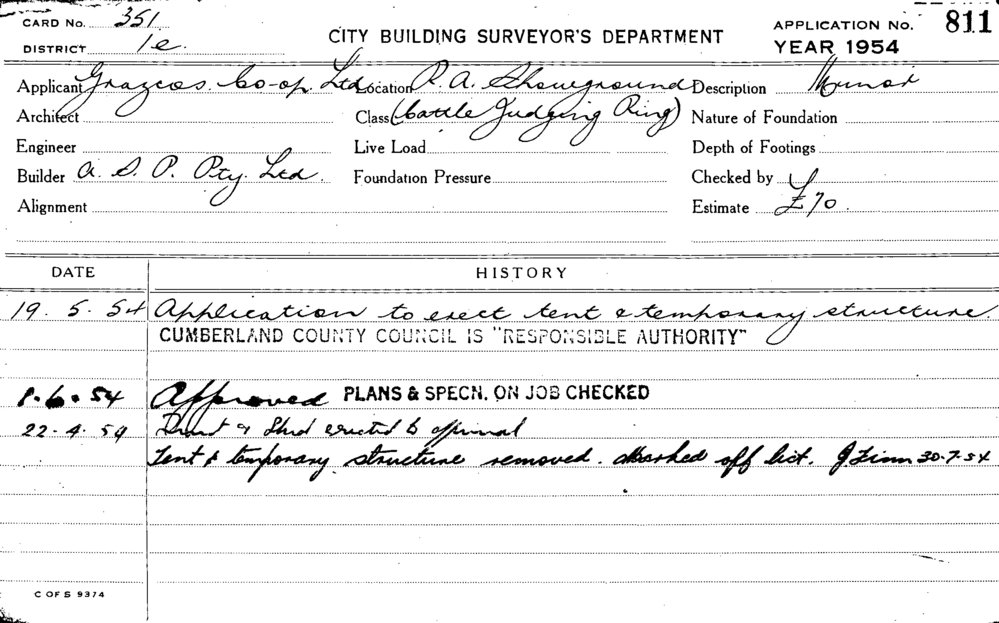 CARD No. 351
DISTRICT 1e
CITY BUILDING SURVEYOR'S DEPARTMENT
APPLICATION No. 811
YEAR 1954
Applicant Grazcos Co-op. Ltd Location R. A. Showground Description Minor
Architect Class (Cattle Judging Ring) Nature of Foundation
Engineer Live Load Depth of Footings
Builder A. S. P. Pty. Ltd. Foundation Pressure Checked by
Alignment Estimate £70
DATE HISTORY
19. 5. 54 Application to erect tent & temporary structure
CUMBERLAND COUNTY COUNCIL IS "RESPONSIBLE AUTHORITY"
1.6.54 Approved PLANS & SPECN. ON JOB CHECKED
22.4.54 & Shed erected to approval
Tent & temporary structure removed. Marked off list. J Finn 30.7.54
C OF S 9374